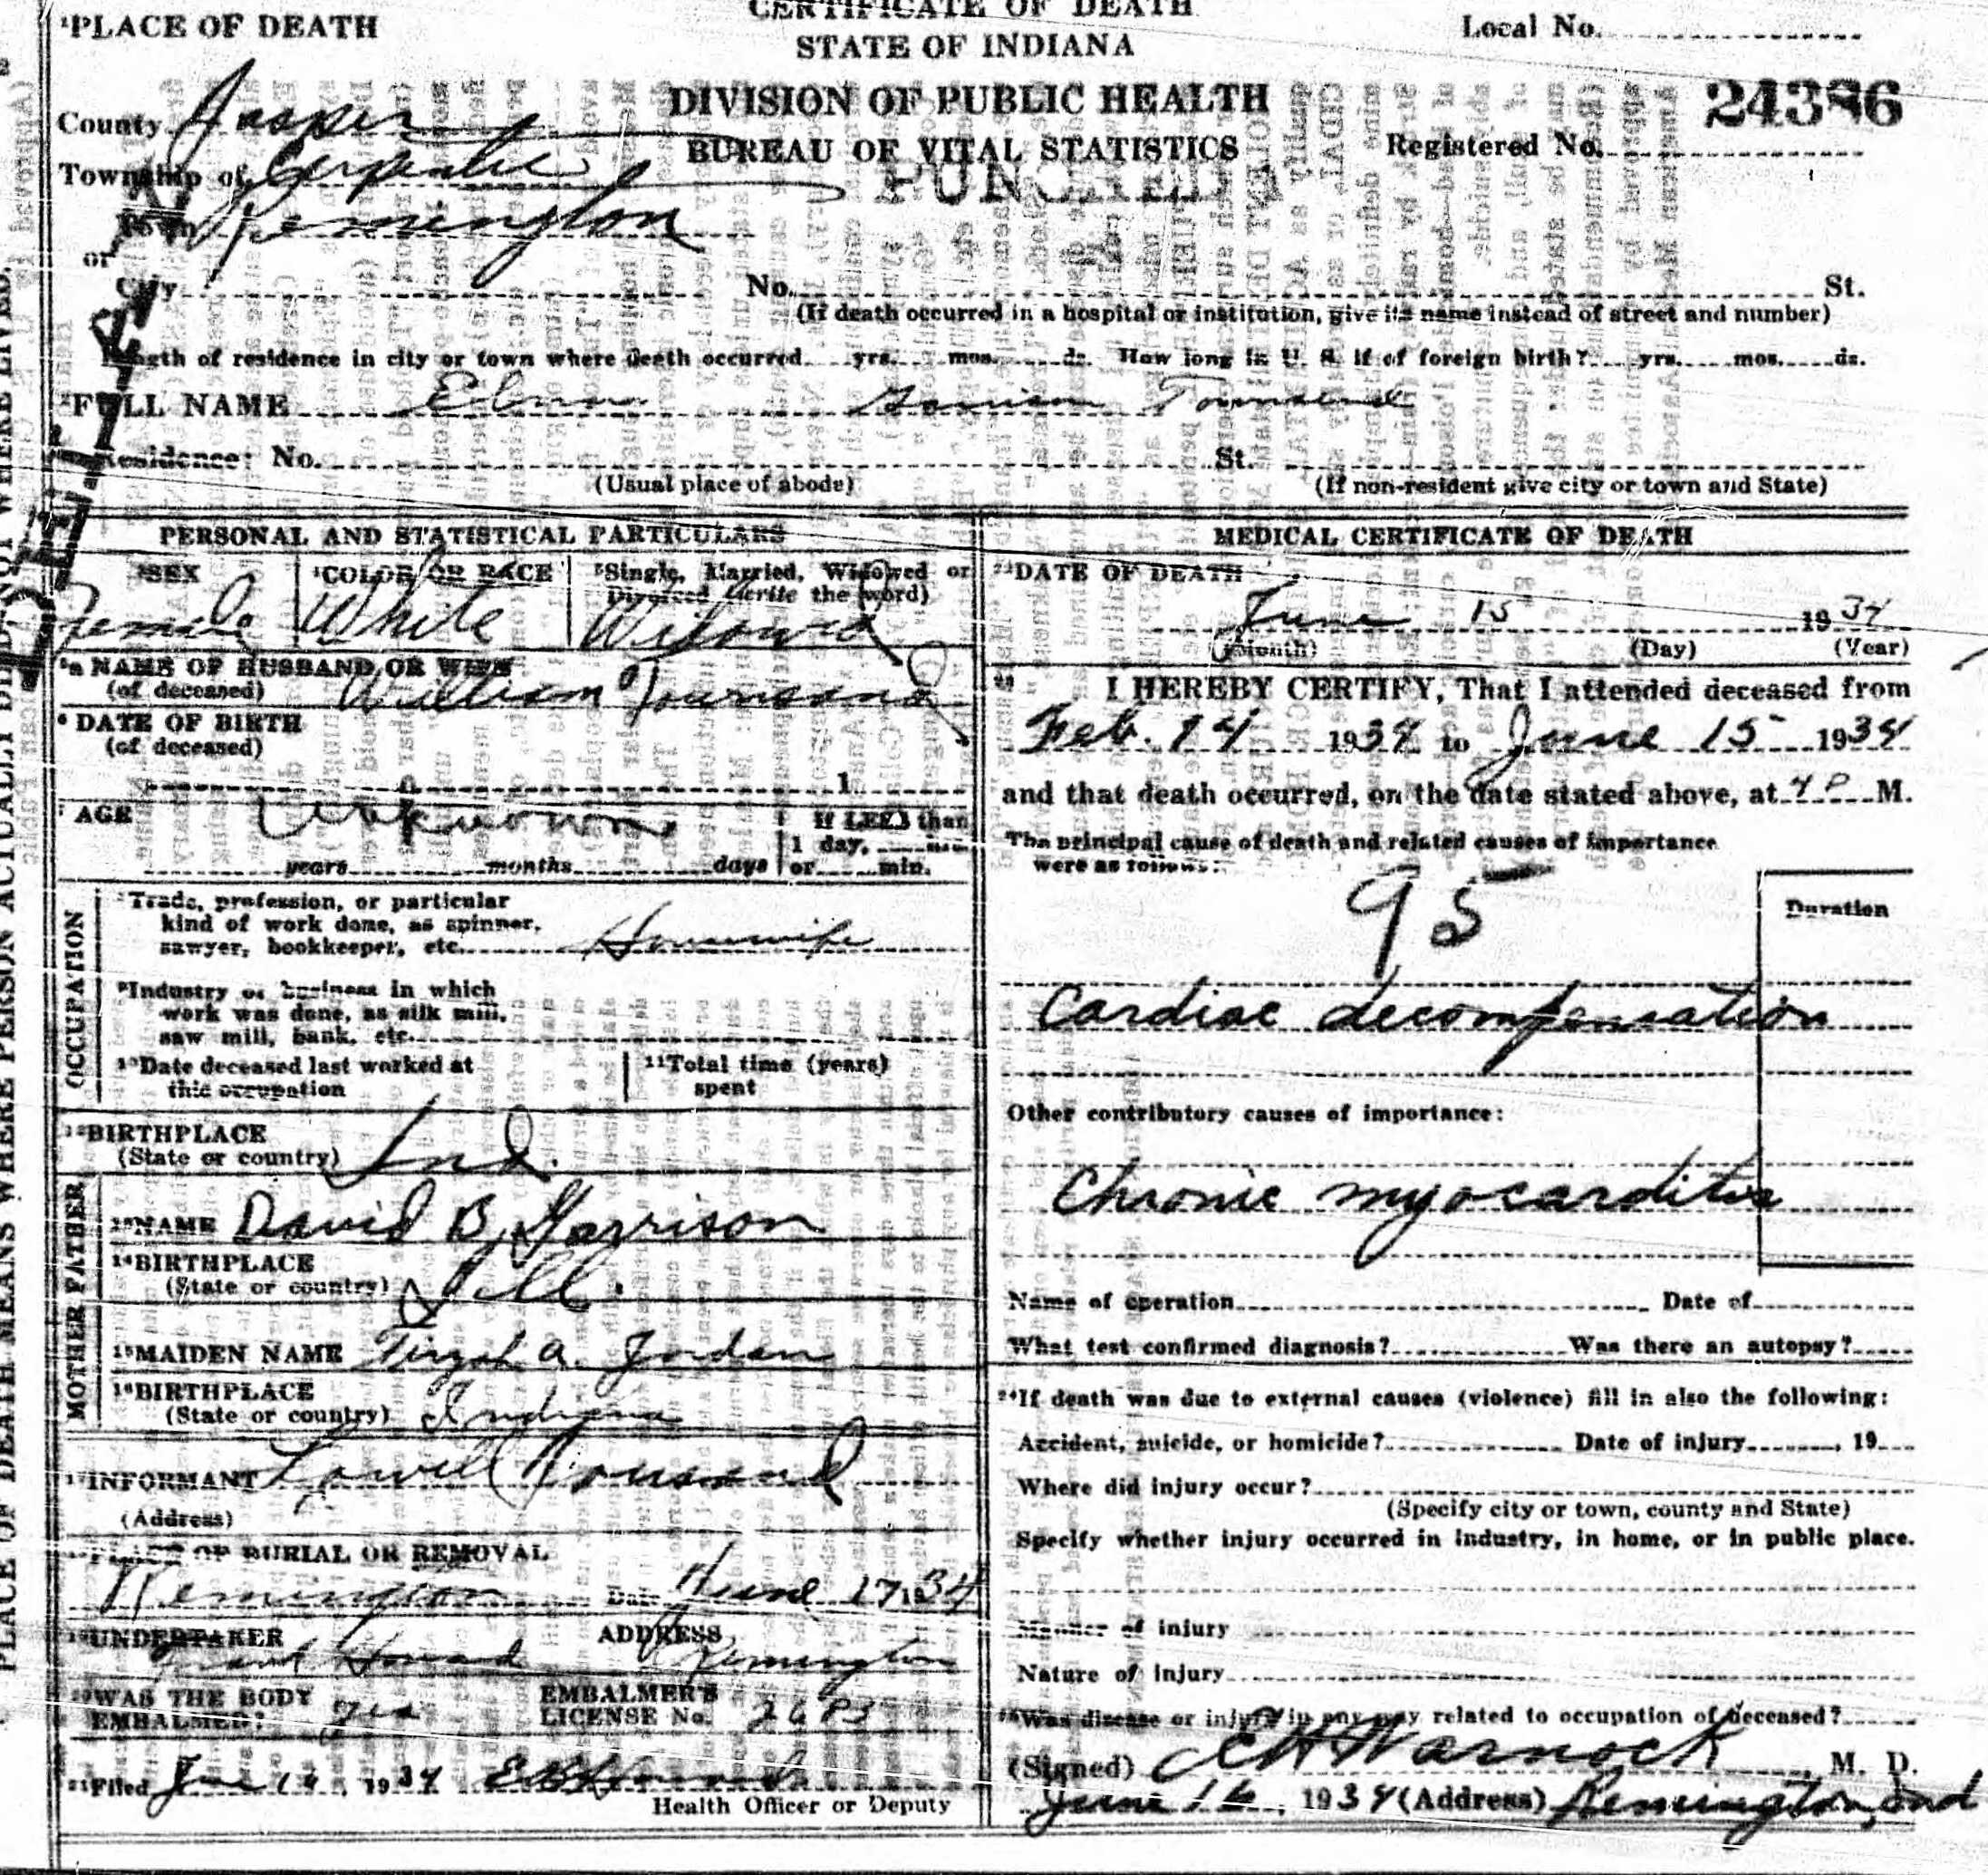 CERTIFICATE OF DEATH
¹PLACE OF DEATH
STATE OF INDIANA
Local No.
DIVISION OF PUBLIC HEALTH
24386
County Jasper
BUREAU OF VITAL STATISTICS
Registered No.
Township of Carpenter
PUNCHED
Town Remington
or
City No. St.
(If death occurred in a hospital or institution, give its name instead of street and number)
Length of residence in city or town where death occurred yrs. mos. ds. How long in U. S. if of foreign birth? yrs. mos. ds.
²FULL NAME Townsend
Residence: No. St.
(Usual place of abode) (If non-resident give city or town and State)
PERSONAL AND STATISTICAL PARTICULARS
³SEX ⁴COLOR OR RACE ⁵Single, Married, Widowed or
Divorced (write the word)
Female White Widowed
⁵ᵃ NAME OF HUSBAND OR WIFE
(of deceased) William Townsend
⁶ DATE OF BIRTH
(of deceased)
1
⁷ AGE Unknown If LESS than
1 day,
years months days or min.
OCCUPATION
⁸Trade, profession, or particular
kind of work done, as spinner,
sawyer, bookkeeper, etc. Housewife
⁹Industry or business in which
work was done, as silk mill,
saw mill, bank, etc.
¹⁰Date deceased last worked at
this occupation
¹¹Total time (years)
spent
¹²BIRTHPLACE
(State or country) Ind.
FATHER
¹³NAME David B. Garrison
¹⁴BIRTHPLACE
(State or country) Ill.
MOTHER
¹⁵MAIDEN NAME Tirzah A. Jordan
¹⁶BIRTHPLACE
(State or country) Indiana
¹⁷INFORMANT Lowell Townsend
(Address)
¹⁸PLACE OF BURIAL OR REMOVAL
Remington Date June 17 1934
¹⁹UNDERTAKER ADDRESS
Frank Howard Remington
²⁰WAS THE BODY
EMBALMED? Yes
EMBALMER'S
LICENSE No.
²¹Filed 1934
Health Officer or Deputy
MEDICAL CERTIFICATE OF DEATH
²²DATE OF DEATH
June 15 1934
(Month) (Day) (Year)
²³ I HEREBY CERTIFY, That I attended deceased from
Feb. 14 1934 to June 15 1934
and that death occurred, on the date stated above, at 4 P M.
The principal cause of death and related causes of importance
were as follows:
95
Duration
Cardiac decompensation
Other contributory causes of importance:
Chronic myocarditis
Name of operation Date of
What test confirmed diagnosis? Was there an autopsy?
²⁴If death was due to external causes (violence) fill in also the following:
Accident, suicide, or homicide? Date of injury , 19
Where did injury occur?
(Specify city or town, county and State)
Specify whether injury occurred in industry, in home, or in public place.
Manner of injury
Nature of injury
²⁵Was disease or injury in any way related to occupation of deceased?
(Signed) Warnock, M. D.
June 16, 1934 (Address) Remington, Ind
PLACE OF DEATH MEANS WHERE PERSON ACTUALLY DIED, NOT WHERE LIVED.